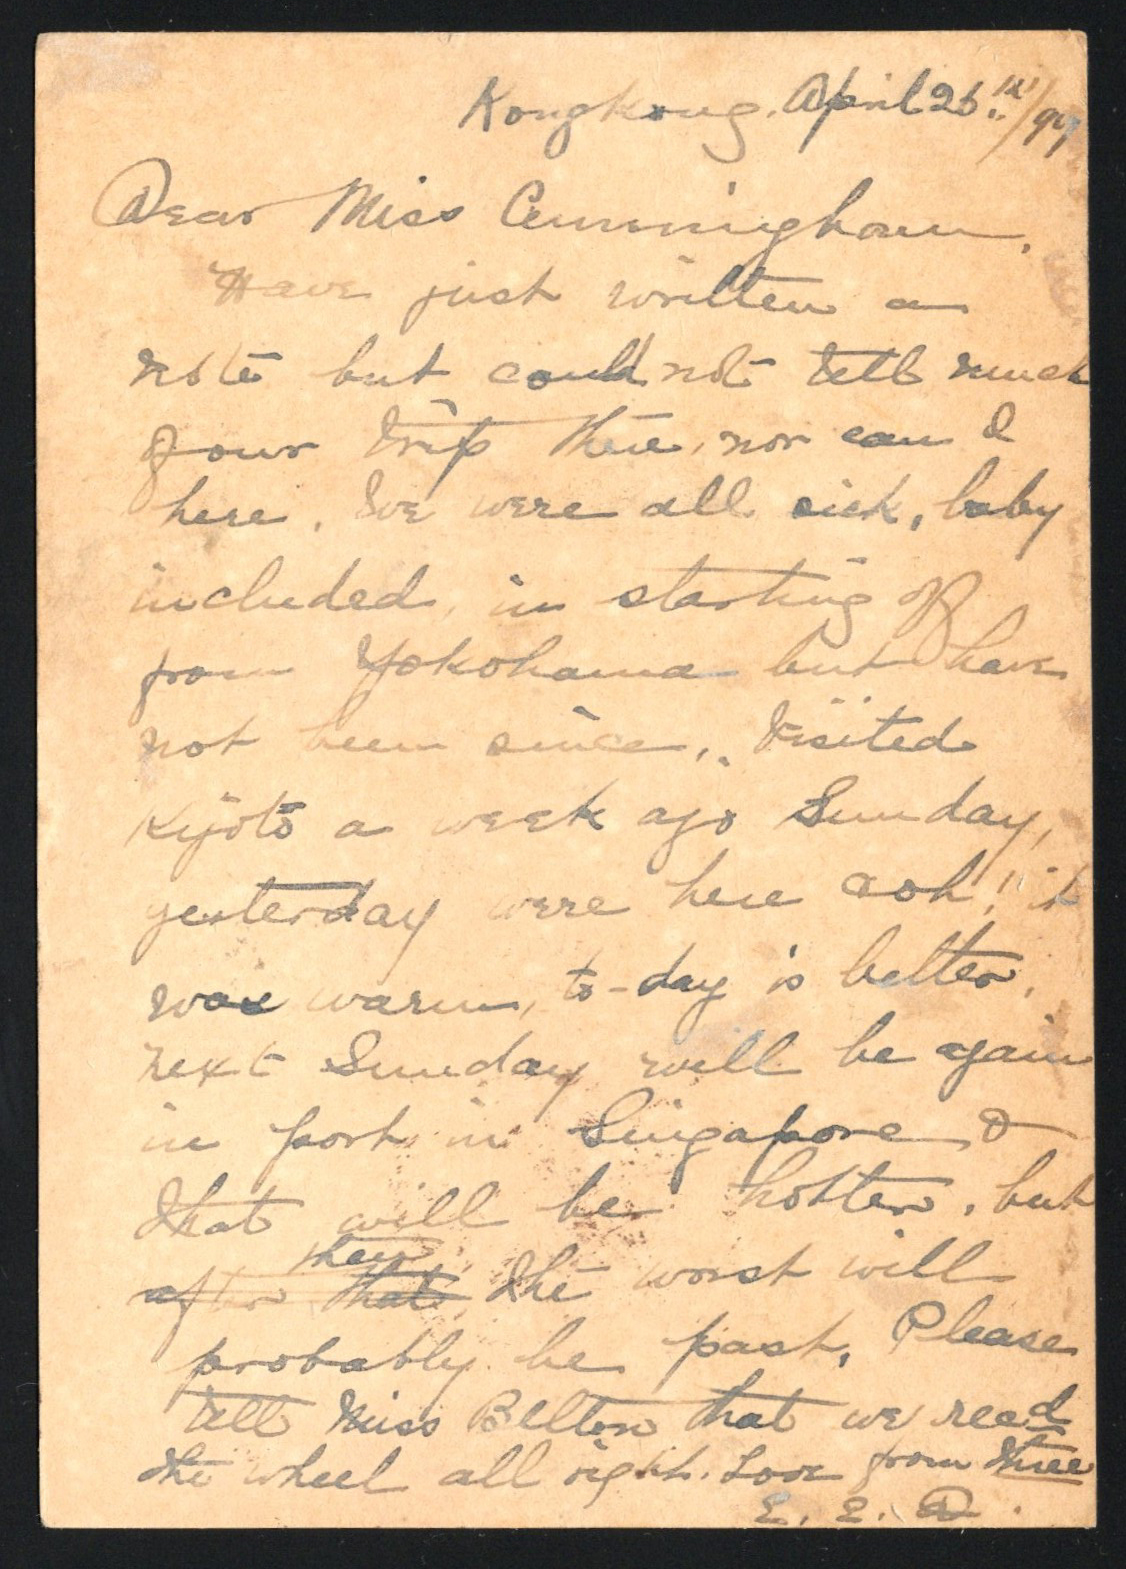 Hongkong. April 26th/97
Dear Miss Cunningham,
Have just written a
note but could not tell much
of our trip there, nor can I
here. We were all sick, baby
included, in starting off
from Yokohama but have
not been since. Visited
Kyoto a week ago Sunday,
yesterday were here & oh! it
was warm, to-day is better,
next Sunday will be again
in port in Singapore &
that will be hotter, but
then
after that the worst will
probably be past. Please
tell Miss Belton that we read
the wheel all right. Love from three
E. E. D.